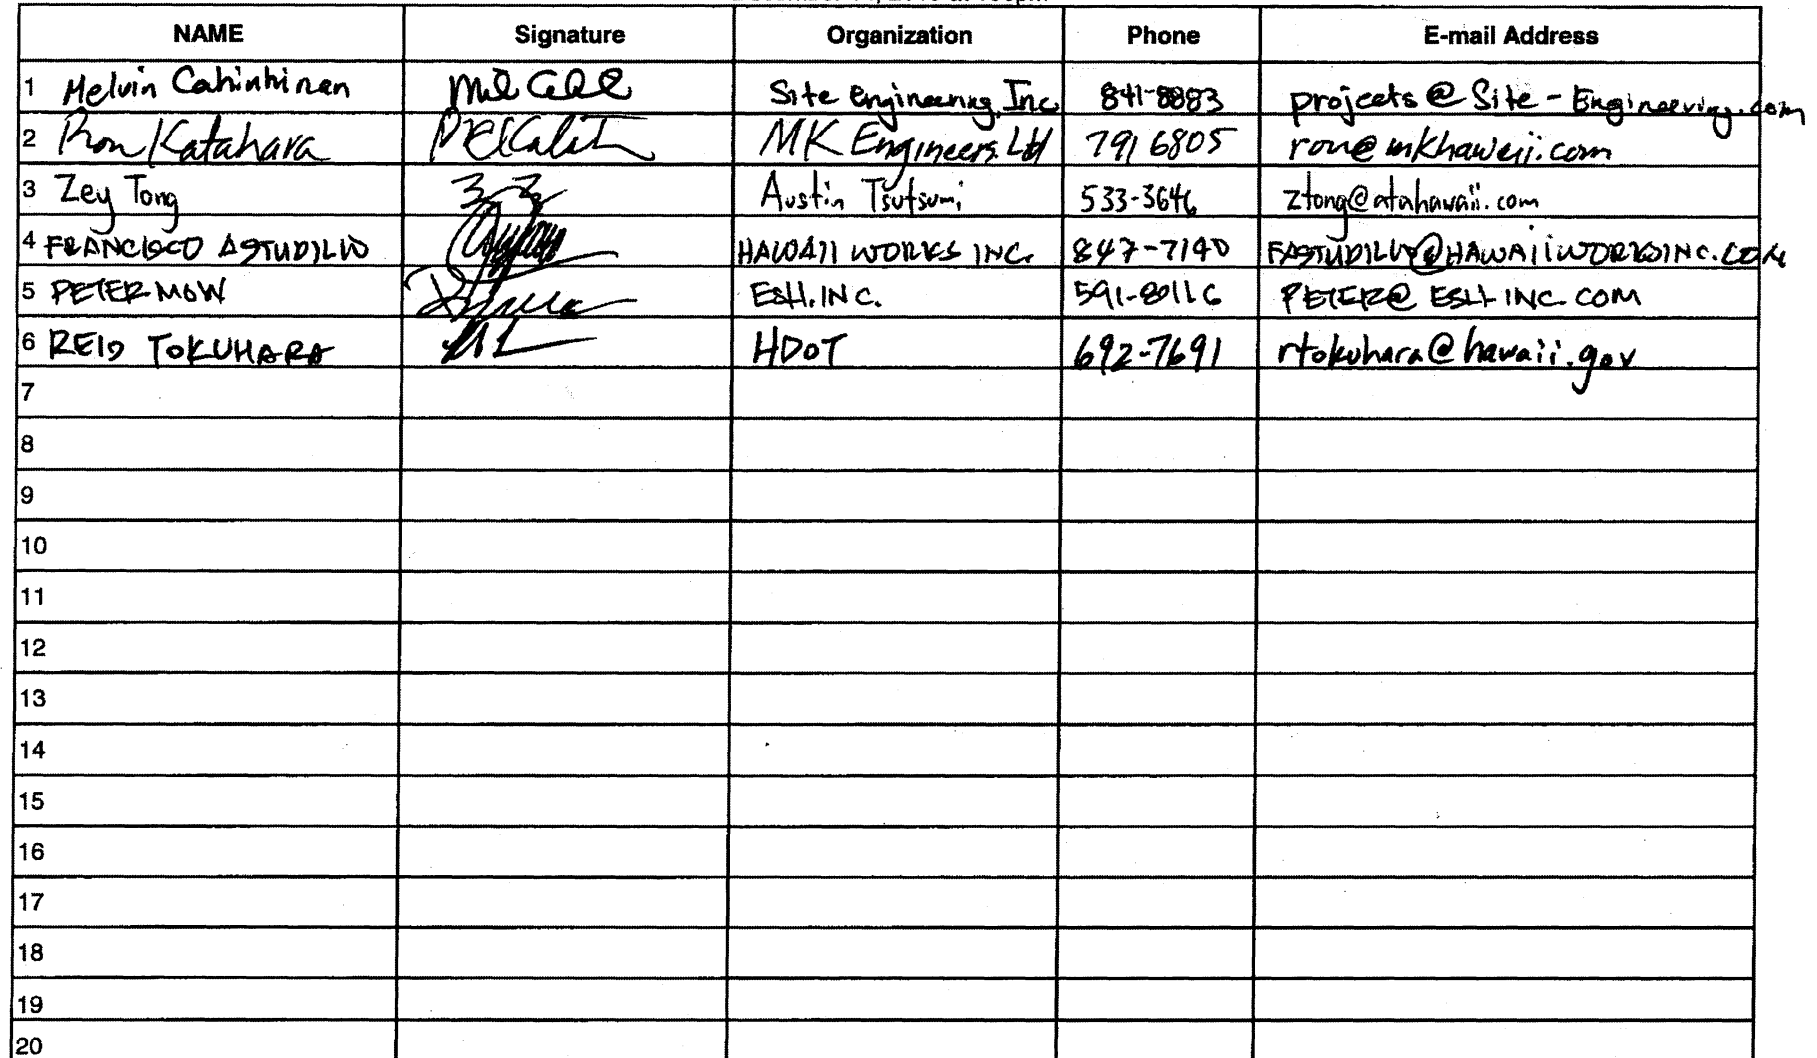 NAME Signature Organization Phone E-mail Address
1 Melvin Cahinhinan Site Engineering, Inc 841-8883 projects@Site-Engineering.com
2 Ron Katahara MK Engineers. Ltd 791 6805 ron@mkhawaii.com
3 Zey Tong Austin Tsutsumi 533-3646 ztong@atahawaii.com
4 FRANCISCO ASTUDILLO HAWAII WORKS INC. 847-7140 FASTUDILLO@HAWAIIWORKSINC.COM
5 PETER MOW ESH. INC. PETER@ESHINC.COM
6 REID TOKUHARA HDOT 692-7691 rtokuhara@hawaii.gov
7
8
9
10
11
12
13
14
15
16
17
18
19
20